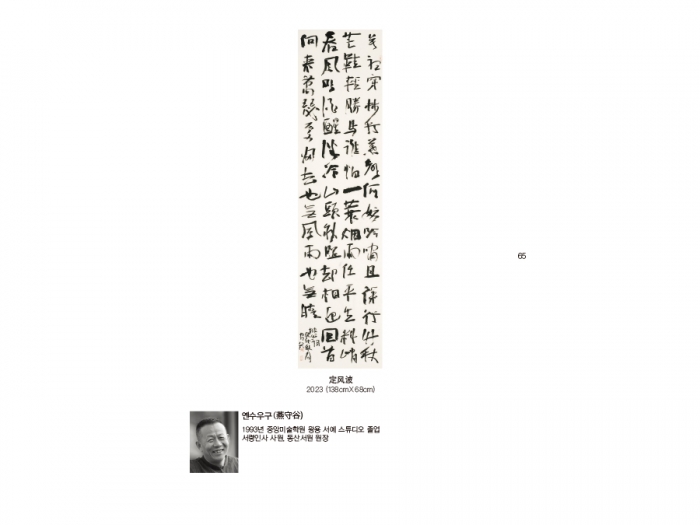 莫听穿林打葉聲何妨吟嘯且徐行竹杖
芒鞋輕勝馬誰怕一蓑烟雨任平生料峭
春風吹酒醒微冷山頭斜照却相迎回首
向来蕭瑟處歸去也無風雨也無晴
65
定风波
2023 (138cmX68cm)
옌수우구 (燕守谷)
1993년 중앙미술학원 왕용 서예 스튜디오 졸업
서령인사 사원, 동산서원 원장